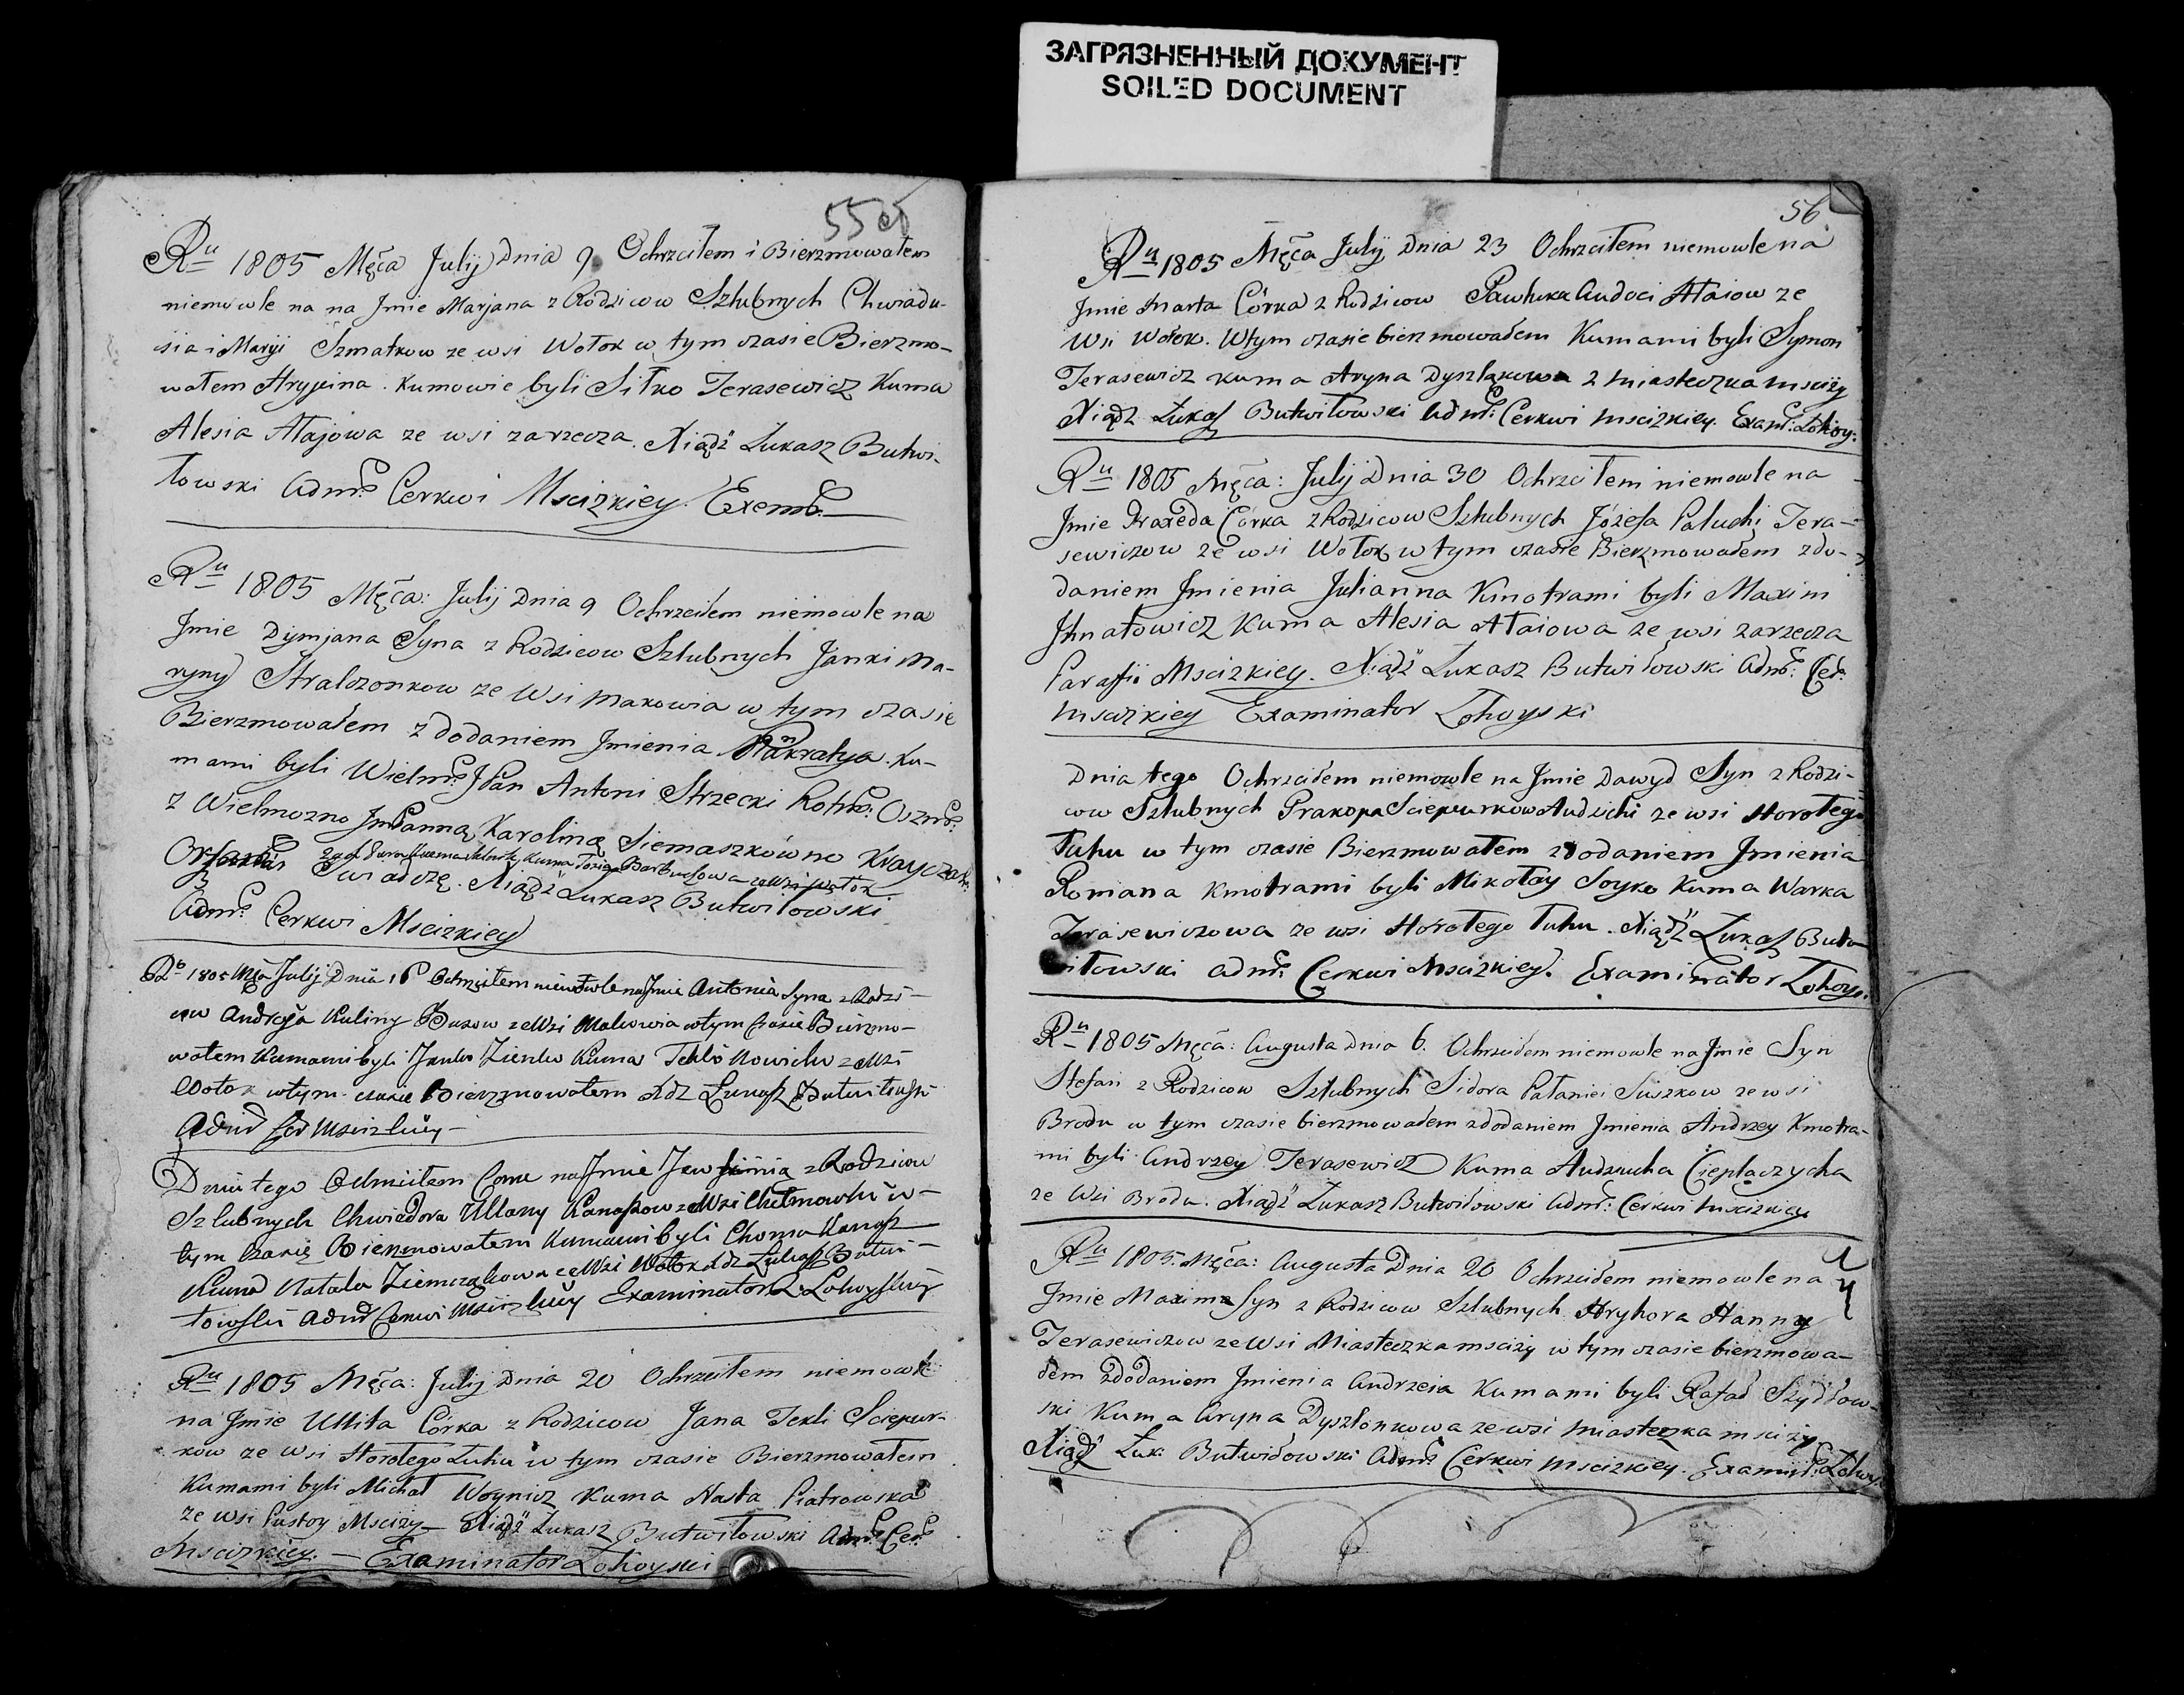 ЗАГРЯЗНЕННЫЙ ДОКУМЕНТ
SOILED DOCUMENT
55 об
Ru 1805 Męca Julij Dnia 9 Ochrzciłem i Bierzmowałem
niemowle na na Jmie Marjana z Rodzicow Szlubnych Chwiadu-
sia i Maryi Szmatkow ze wsi Wołok w tym czasie Bierzmo-
wałem Hrypina. Kumowie byli Siłko Terasewicz Kuma
Alesia Atajowa ze wsi zarzecza. Xiądz Łukasz Butwi-
łowski Adm: Cerkwi Mscizkiey.
Ru 1805 Męca: Julij Dnia 9 Ochrzciłem niemowle na
Jmie Dymjana Syna z Rodzicow Szlubnych Janki Ma-
ryny Stralczonkow ze Wsi Makowia w tym czasie
Bierzmowałem z dodaniem Jmienia Pankratya. Ku-
mami byli Wielm: JPan Antoni Strzecki Rotm: Oszm:
z Wielmozno JmPanną Karoliną Siemaszkówno
Kuma
Swiadczę. Xiądz Łukasz Butwiłowski
Adm: Cerkwi Mscizkiey
1805 Męca Julij Dnia Ochrzciłem niemowle na Jmie Antonia Syna z Rodzi-
cow Andreja Kuliny ze Wsi Makowia w tym czasie Bierzmo-
wałem Kumami byli Janko Zienko Kuma ze Wsi
Wołok w tym czasie Bierzmowałem Xdz Łukasz Butwiłowski
Adm Cer Mscizkiey
Dnia tego Ochrzciłem Corke na Jmie z Rodzicow
Szlubnych Chwiedora Ullany ze Wsi w
tym czasie Bierzmowałem Kumami byli Choma
Kuma Natala ze Wsi Wołok Xdz Łukasz Butwi-
łowski Adm Cerkwi Mscizkiey Examinator Łohoyskiy
Ru 1805 Męca: Julij Dnia 20 Ochrzciłem niemowle
na Jmie Ullita Córka z Rodzicow Jana Tekli Sciepur-
kow ze wsi Horołego Łuhu w tym czasie Bierzmowałem
Kumami byli Michał Woynicz Kuma Nasta Piatrowska
ze wsi Pustoy Msciży Xiądz Łukasz Butwiłowski Adm: Cer:
Mscizkiey. Examinator Łohoyski
56
Ru 1805 Męca July Dnia 23 Ochrzciłem niemowle na
Jmie Marta Córka z Rodzicow Pawluka Audoci Ataiow ze
Wsi Wołok. W tym czasie bierzmowałem Kumami byli Symon
Terasewicz kuma Aryna Dyszlakowa z miasteczka Msciży
Xiądz Łukasz Butwiłowski Adm: Cerkwi Mscizkiey. Exam: Łohoy:
Ru 1805 Męca: Julij Dnia 30 Ochrzciłem niemowle na
Jmie Praxeda Córka z Rodzicow Szlubnych Józefa Paluchi Tera-
sewiczow ze wsi Wołok w tym czasie Bierzmowałem z do-
daniem Jmienia Julianna Kmotrami byli Maxim
Ihnatowicz Kuma Alesia Ataiowa ze wsi zarzecza
Parafii Mscizkiey. Xiądz Łukasz Butwiłowski Adm: Cer:
Mscizkiey Examinator Łohoyski
Dnia tego Ochrzciłem niemowle na Jmie Dawyd Syn z Rodzi-
cow Szlubnych Prakopa Sciepurkow Audzichi ze wsi Horołego
Łuhu w tym czasie Bierzmowałem z dodaniem Jmienia
Romana Kmotrami byli Mikołay Soyko Kuma Warka
Terasewiczowa ze wsi Horołego Łuhu. Xiądz Łukasz Butw
iłowski Adm: Cerkwi Mscizkiey. Examinator Łohoys.
Ru 1805 Męca: Augusta Dnia 6. Ochrzciłem niemowle na Jmie Syn
Stefan z Rodzicow Szlubnych Sidora Pałanei Suszkow ze wsi
Brodu w tym czasie bierzmowałem z dodaniem Jmienia Andrzey Kmotra-
mi byli Andrzey Terasewicz Kuma Audziucha Ciepłaczycha
ze Wsi Brodu. Xiądz Łukasz Butwiłowski Adm: Cerkwi Mscizkiey
Ru 1805. Męca: Augusta Dnia 20 Ochrzciłem niemowle na
Jmie Maxima Syn z Rodzicow Szlubnych Hryhora Hanny
Terasewiczow ze Wsi Miasteczka msciży w tym czasie bierzmowa-
łem z dodaniem Jmienia Andrzeia Kumami byli Rafał Szydłow-
ski Kuma Aryna Dyszlonkowa ze wsi miasteczka msciży.
Xiądz Łuk: Butwiłowski Adm: Cerkwi Mscizkiey. Examin: Łohoy.